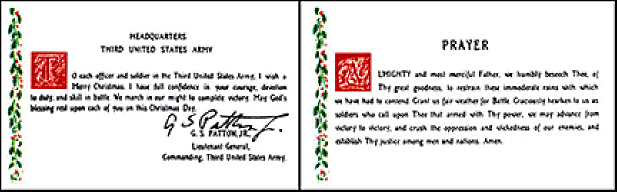 HEADQUARTERS
THIRD UNITED STATES ARMY
TO each officer and soldier in the Third United States Army, I wish a
Merry Christmas. I have full confidence in your courage, devotion
to duty, and skill in battle. We march in our might to complete victory. May God's
blessing rest upon each of you on this Christmas Day.
G S Patton Jr.
G. S. PATTON, JR,
Lieutenant General,
Commanding, Third United States Army.
PRAYER
ALMIGHTY and most merciful Father, we humbly beseech Thee, of
Thy great goodness, to restrain these immoderate rains with which
we have had to contend. Grant us fair weather for Battle. Graciously hearken to us as
soldiers who call upon Thee that armed with Thy power, we may advance from
victory to victory, and crush the oppression and wickedness of our enemies, and
establish Thy justice among men and nations. Amen.